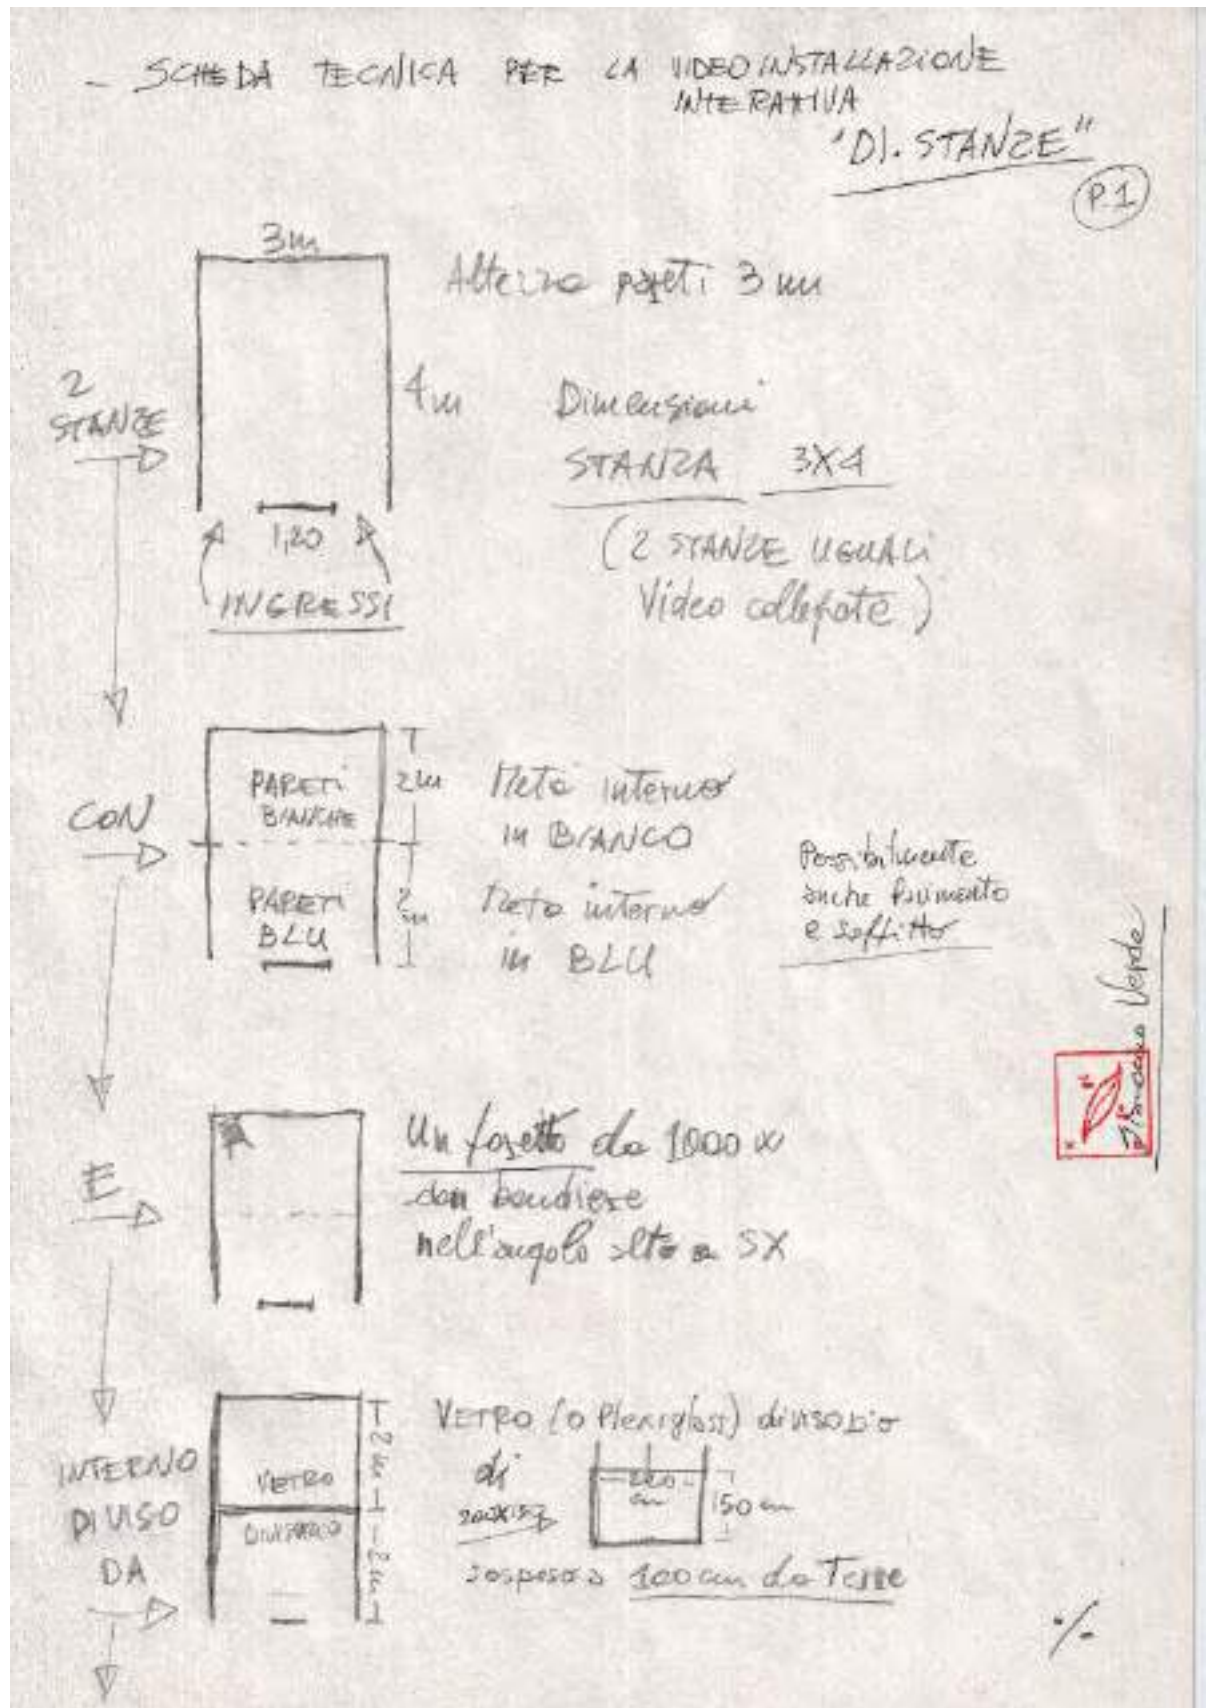 - SCHEDA TECNICA PER LA VIDEOINSTALLAZIONE
INTERATTIVA
"DI. STANZE"
P.1
3m
Altezza pareti 3 m
2
STANZE
4m
Dimensioni
STANZA 3X4
1,20
INGRESSI
(2 STANZE UGUALI
Video collegate)
CON
PARETI
BIANCHE
2m
Metà interno
in BIANCO
PARETI
BLU
2m
Metà interno
in BLU
Possibilmente
anche Pavimento
e soffitto
E
Un faretto da 1000 W
con bandiere
nell'angolo alto a SX
Giacomo Verde
INTERNO
DIVISO
DA
VETRO
DIVISORIO
2m
2m
VETRO (o Plexiglass) divisorio
di
200X150
200
cm
150 cm
sospeso a 100 cm da Terra
./.